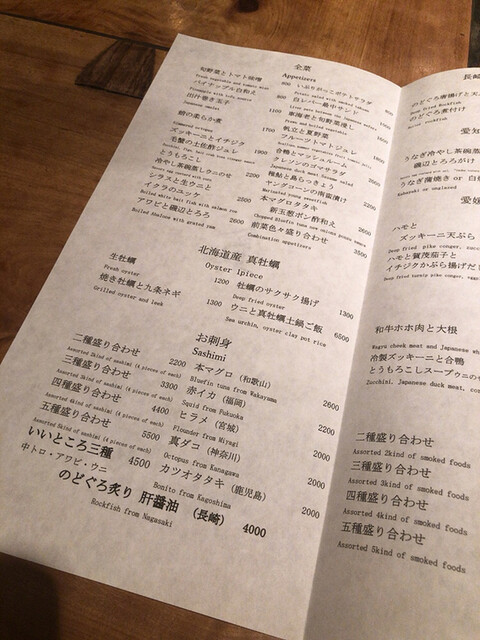 全菜
Appetizers
旬野菜とトマト味噌
Fresh vegetable and tomato miso
パイナップル白和え
Pineapple with tofu sauce
出汁巻き玉子
Japanese omelet
蛸の柔らか煮
Simmered octopus
ズッキーニとイチジク
毛蟹の土佐酢ジュレ
とうもろこし
冷やし茶碗蒸しウニのせ
シラスと生ウニと
イクラのユッケ
アワビと磯辺とろろ
Boiled Abalone with grated yam
800
いぶりがっこポテトサラダ
白レバー最中サンド
東海老と旬野菜浸し
Prawn and boiled vegetable
帆立と夏野菜
フルーツトマトジュレ
合鴨とマッシュルーム
クレソンのゴマサラダ
稚鮎と島らっきょう
ヤングコーンの南蛮漬け
本マグロタタキ
新玉葱ポン酢和え
前菜色々盛り合わせ
Combination appetizers
3500
北海道産 真牡蠣
Oyster 1piece
生牡蠣 1200
Fresh oyster
焼き牡蠣と九条ネギ 1300
Grilled oyster and leek
牡蠣のサクサク揚げ 1300
Deep fried oyster
ウニと真牡蠣土鍋ご飯 6500
Sea urchin, oyster clay pot rice
お刺身
Sashimi
二種盛り合わせ 2200
Assorted 2kind of sashimi (4 pieces of each)
三種盛り合わせ 3300
Assorted 3kind of sashimi (4 pieces of each)
四種盛り合わせ 4400
Assorted 4kind of sashimi (4 pieces of each)
五種盛り合わせ 5500
Assorted 5kind of sashimi (4 pieces of each)
いいところ三種 4500
中トロ・アワビ・ウニ
本マグロ (和歌山) 2600
Bluefin tuna from Wakayama
赤イカ (福岡) 2000
Squid from Fukuoka
ヒラメ (宮城) 2000
Flounder from Miyagi
真ダコ (神奈川) 2000
Octopus from Kanagawa
カツオタタキ (鹿児島) 2000
Bonito from Kagoshima
のどぐろ炙り 肝醤油 (長崎) 4000
Rockfish from Nagasaki
長崎
のどぐろ唐揚げと天
Deep fried Rockfish
のどぐろ煮付け
愛知
うなぎ冷やし茶碗蒸
磯辺とろろがけ
うなぎ蒲焼き or 白焼
Kabayaki or unglazed
愛媛
ハモと
ズッキーニ天ぷら
ハモと賀茂茄子と
イチジクかぶら揚げだし
和牛ホホ肉と大根
Wagyu cheek meat and Japanese
冷製ズッキーニと合鴨
とうもろこしスープウニのせ
Zucchini, Japanese duck meat,
二種盛り合わせ
Assorted 2kind of smoked foods
三種盛り合わせ
Assorted 3kind of smoked foods
四種盛り合わせ
Assorted 4kind of smoked foods
五種盛り合わせ
Assorted 5kind of smoked foods